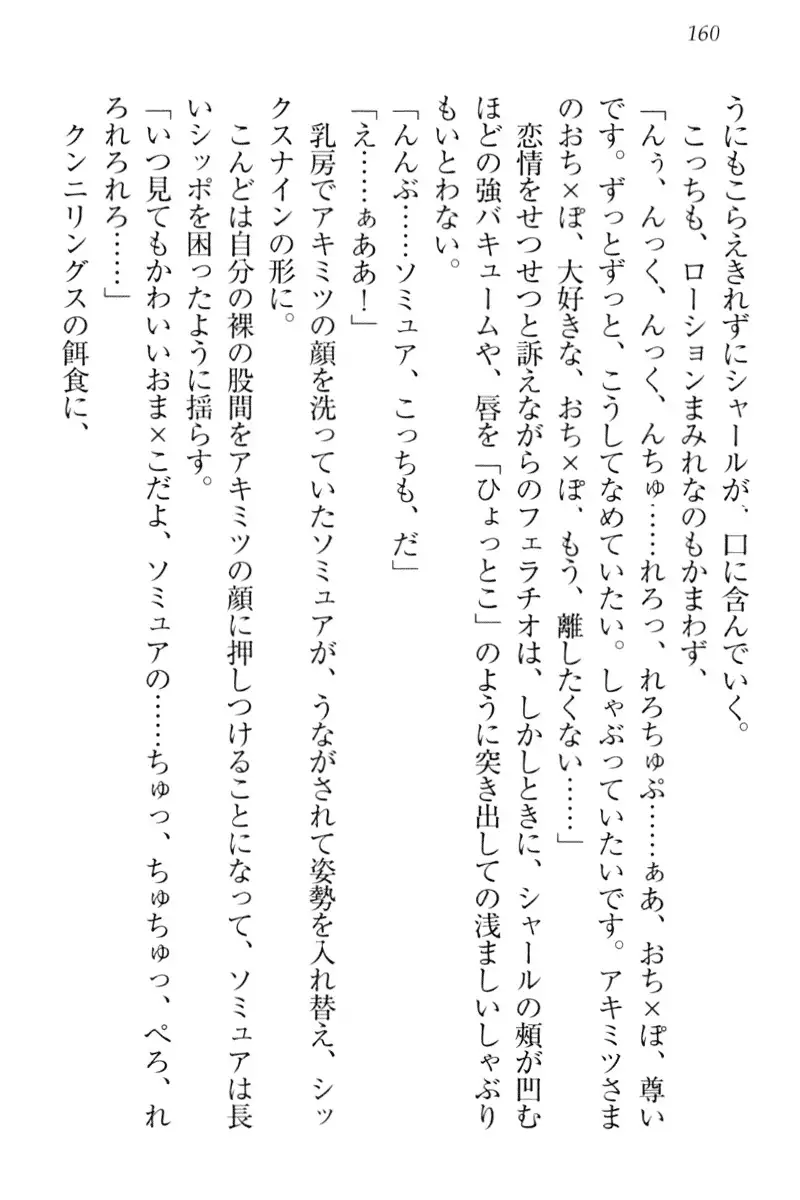 160
うにもこらえきれずにシャールが、口に含んでいく。
こっちも、ローションまみれなのもかまわず、
「んぅ、んっく、んっく、んちゅ……れろっ、れろちゅぷ……ぁあ、おち×ぽ、尊い
です。ずっとずっと、こうしてなめていたい。しゃぶっていたいです。アキミツさま
のおち×ぽ、大好きな、おち×ぽ、もう、離したくない……」
恋情をせつせつと訴えながらのフェラチオは、しかしときに、シャールの頰が凹む
ほどの強バキュームや、唇を「ひょっとこ」のように突き出しての浅ましいしゃぶり
もいとわない。
「んんぶ……ソミュア、こっちも、だ」
「え……ぁああ！」
乳房でアキミツの顔を洗っていたソミュアが、うながされて姿勢を入れ替え、シッ
クスナインの形に。
こんどは自分の裸の股間をアキミツの顔に押しつけることになって、ソミュアは長
いシッポを困ったように揺らす。
「いつ見てもかわいいおま×こだよ、ソミュアの……ちゅっ、ちゅちゅっ、ぺろ、れ
ろれろれろ……」
クンニリングスの餌食に、